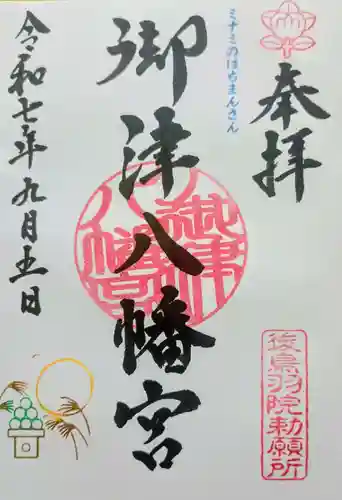 奉拝
ミナミのはちまんさん
御津八幡宮
御津八幡宮
後鳥羽院勅願所
令和七年九月五日